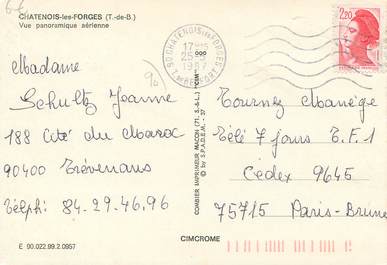 CHATENOIS-les-FORGES (T.-de-B.)
Vue panoramique aérienne
90 CHATENOIS les FORGES
2,20
Madame
Schultz Jeanne
188 Cité du Maroc
90400 Trévenans
Télph: 84.29.46.96
COMBIER IMPRIMEUR MACON (71. S.-&-L.) "CIM"
© by S.P.A.D.E.M. - 37
Tournez Manège
Télé 7 jours T.F.1
Cédex 9645
75715 Paris-Brune
CIMCROME
E 90.022.99.2.0957